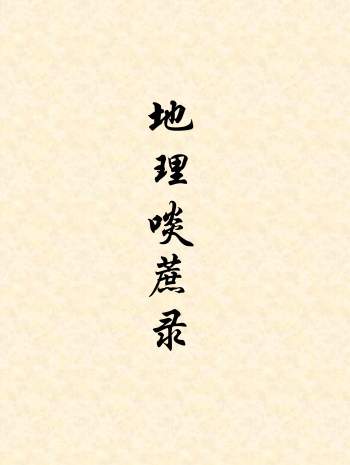 地理啖蔗录